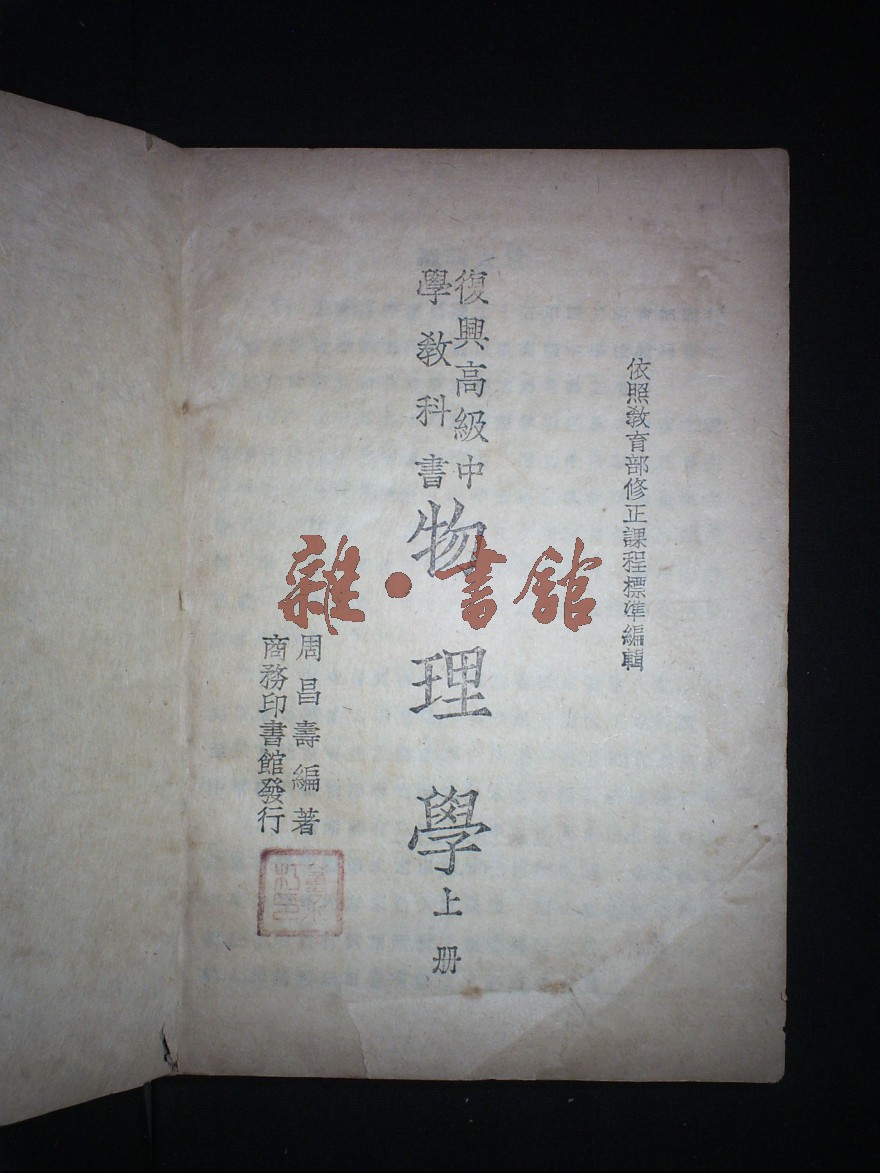 依照教育部修正課程標準編輯
復興高級中
學教科書
物理學
上册
周昌壽編著
商務印書館發行
雜·書館